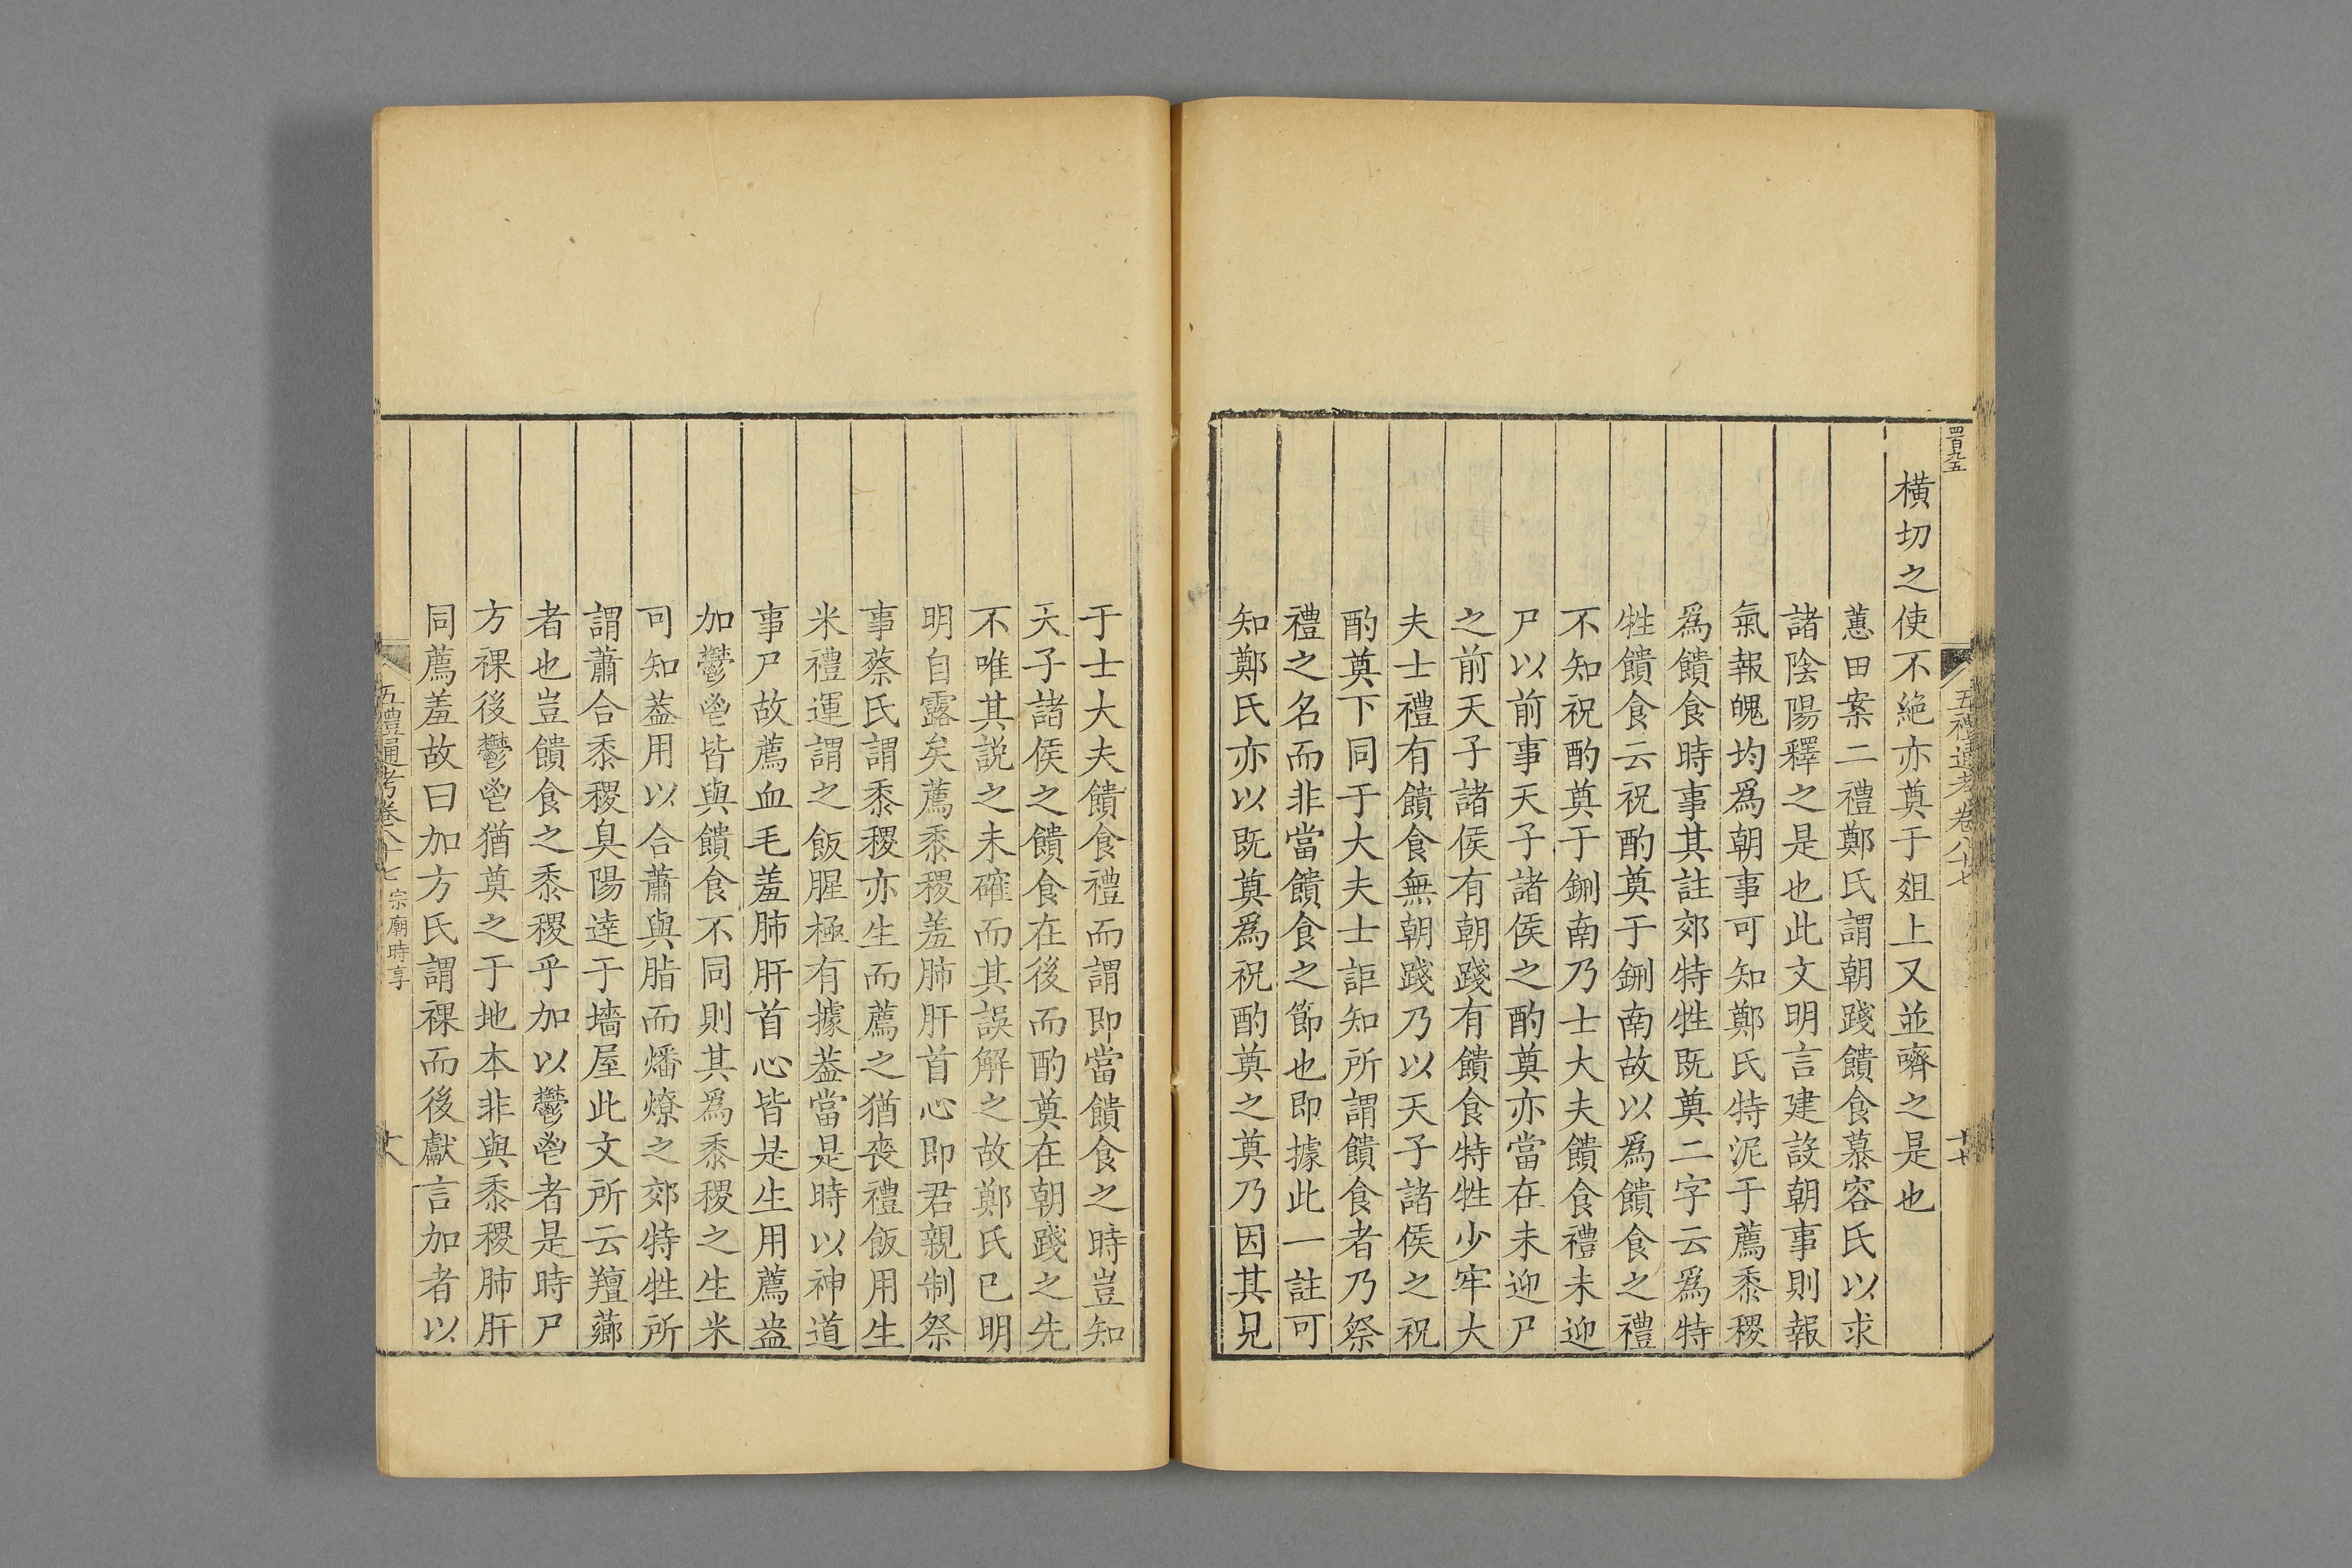 四百九五
五禮通考卷八十七
十七
横切之使不絶亦奠于俎上又並嚌之是也
蕙田案二禮鄭氏謂朝踐饋食慕容氏以求
諸陰陽釋之是也此文明言建設朝事則報
氣報魄均爲朝事可知鄭氏特泥于薦黍稷
爲饋食時事其註郊特牲既奠二字云爲特
牲饋食云祝酌奠于鉶南故以爲饋食之禮
不知祝酌奠于鉶南乃士大夫饋食禮未迎
尸以前事天子諸侯之酌奠亦當在未迎尸
之前天子諸侯有朝踐有饋食特牲少牢大
夫士禮有饋食無朝踐乃以天子諸侯之祝
酌奠下同于大夫士詎知所謂饋食者乃祭
禮之名而非當饋食之節也即據此一註可
知鄭氏亦以既奠爲祝酌奠之奠乃因其見
于士大夫饋食禮而謂即當饋食之時豈知
天子諸侯之饋食在後而酌奠在朝踐之先
不唯其説之未確而其誤解之故鄭氏已明
明自露矣薦黍稷羞肺肝首心即君親制祭
事蔡氏謂黍稷亦生而薦之猶喪禮飯用生
米禮運謂之飯腥極有據葢當是時以神道
事尸故薦血毛羞肺肝首心皆是生用薦盎
加鬱鬯皆與饋食不同則其爲黍稷之生米
可知葢用以合蕭與脂而燔燎之郊特牲所
謂蕭合黍稷臭陽達于墻屋此文所云羶薌
者也豈饋食之黍稷乎加以鬱鬯者是時尸
方祼後鬱鬯猶奠之于地本非與黍稷肺肝
同薦羞故曰加方氏謂祼而後獻言加者以
五禮通考卷八十七 宗廟時享